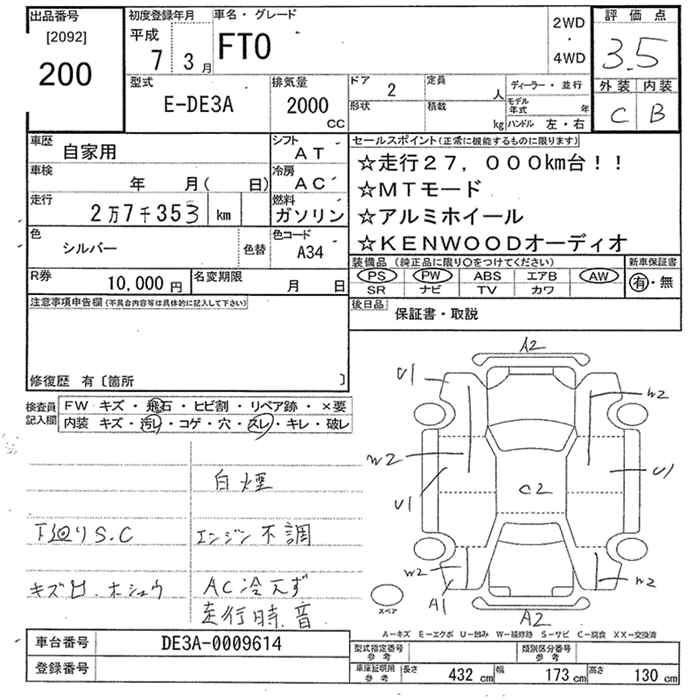 出品番号
[2092]
200
初度登録年月
平成
7 3月
車名・グレード
FTO
2WD
・
4WD
評価点
3.5
外装 内装
C B
型式
E-DE3A
排気量
2000
CC
ドア 2
定員 人
形状
積載 kg
ディーラー・並行
モデル年式 年
ハンドル 左・右
車歴
自家用
シフト
AT
車検
年 月( 日)
冷房
AC
走行
2万7千353 km
燃料
ガソリン
色
シルバー
色替
色コード
A34
R券
10,000円
名変期限
月 日
セールスポイント(正常に機能するものに限ります)
☆走行27,000km台!!
☆MTモード
☆アルミホイール
☆KENWOODオーディオ
装備品(純正品に限り○をつけてください)
新車保証書
PS PW ABS エアB AW
SR ナビ TV カワ
有・無
後日品
保証書・取説
注意事項申告欄(不具合内容等は具体的に記入して下さい)
修復歴 有〔箇所 〕
検査員
記入欄
FW キズ・飛石・ヒビ割・リペア跡・×要
内装 キズ・汚レ・コゲ・穴・スレ・キレ・破レ
白煙
下廻りS.C
エンジン不調
キズ日.ホシュウ
AC冷えず
走行時.音
A2
U1
W2
W2
U1
U1
C2
W2
W2
A1
A2
スペア
A-キズ E-エクボ U-凹み W-補修跡 S-サビ C-腐食 XX-交換済
車台番号
DE3A-0009614
登録番号
型式指定番号
参考
類別区分番号
参考
車庫証明用
参考
長さ 432cm
幅 173cm
高さ 130cm